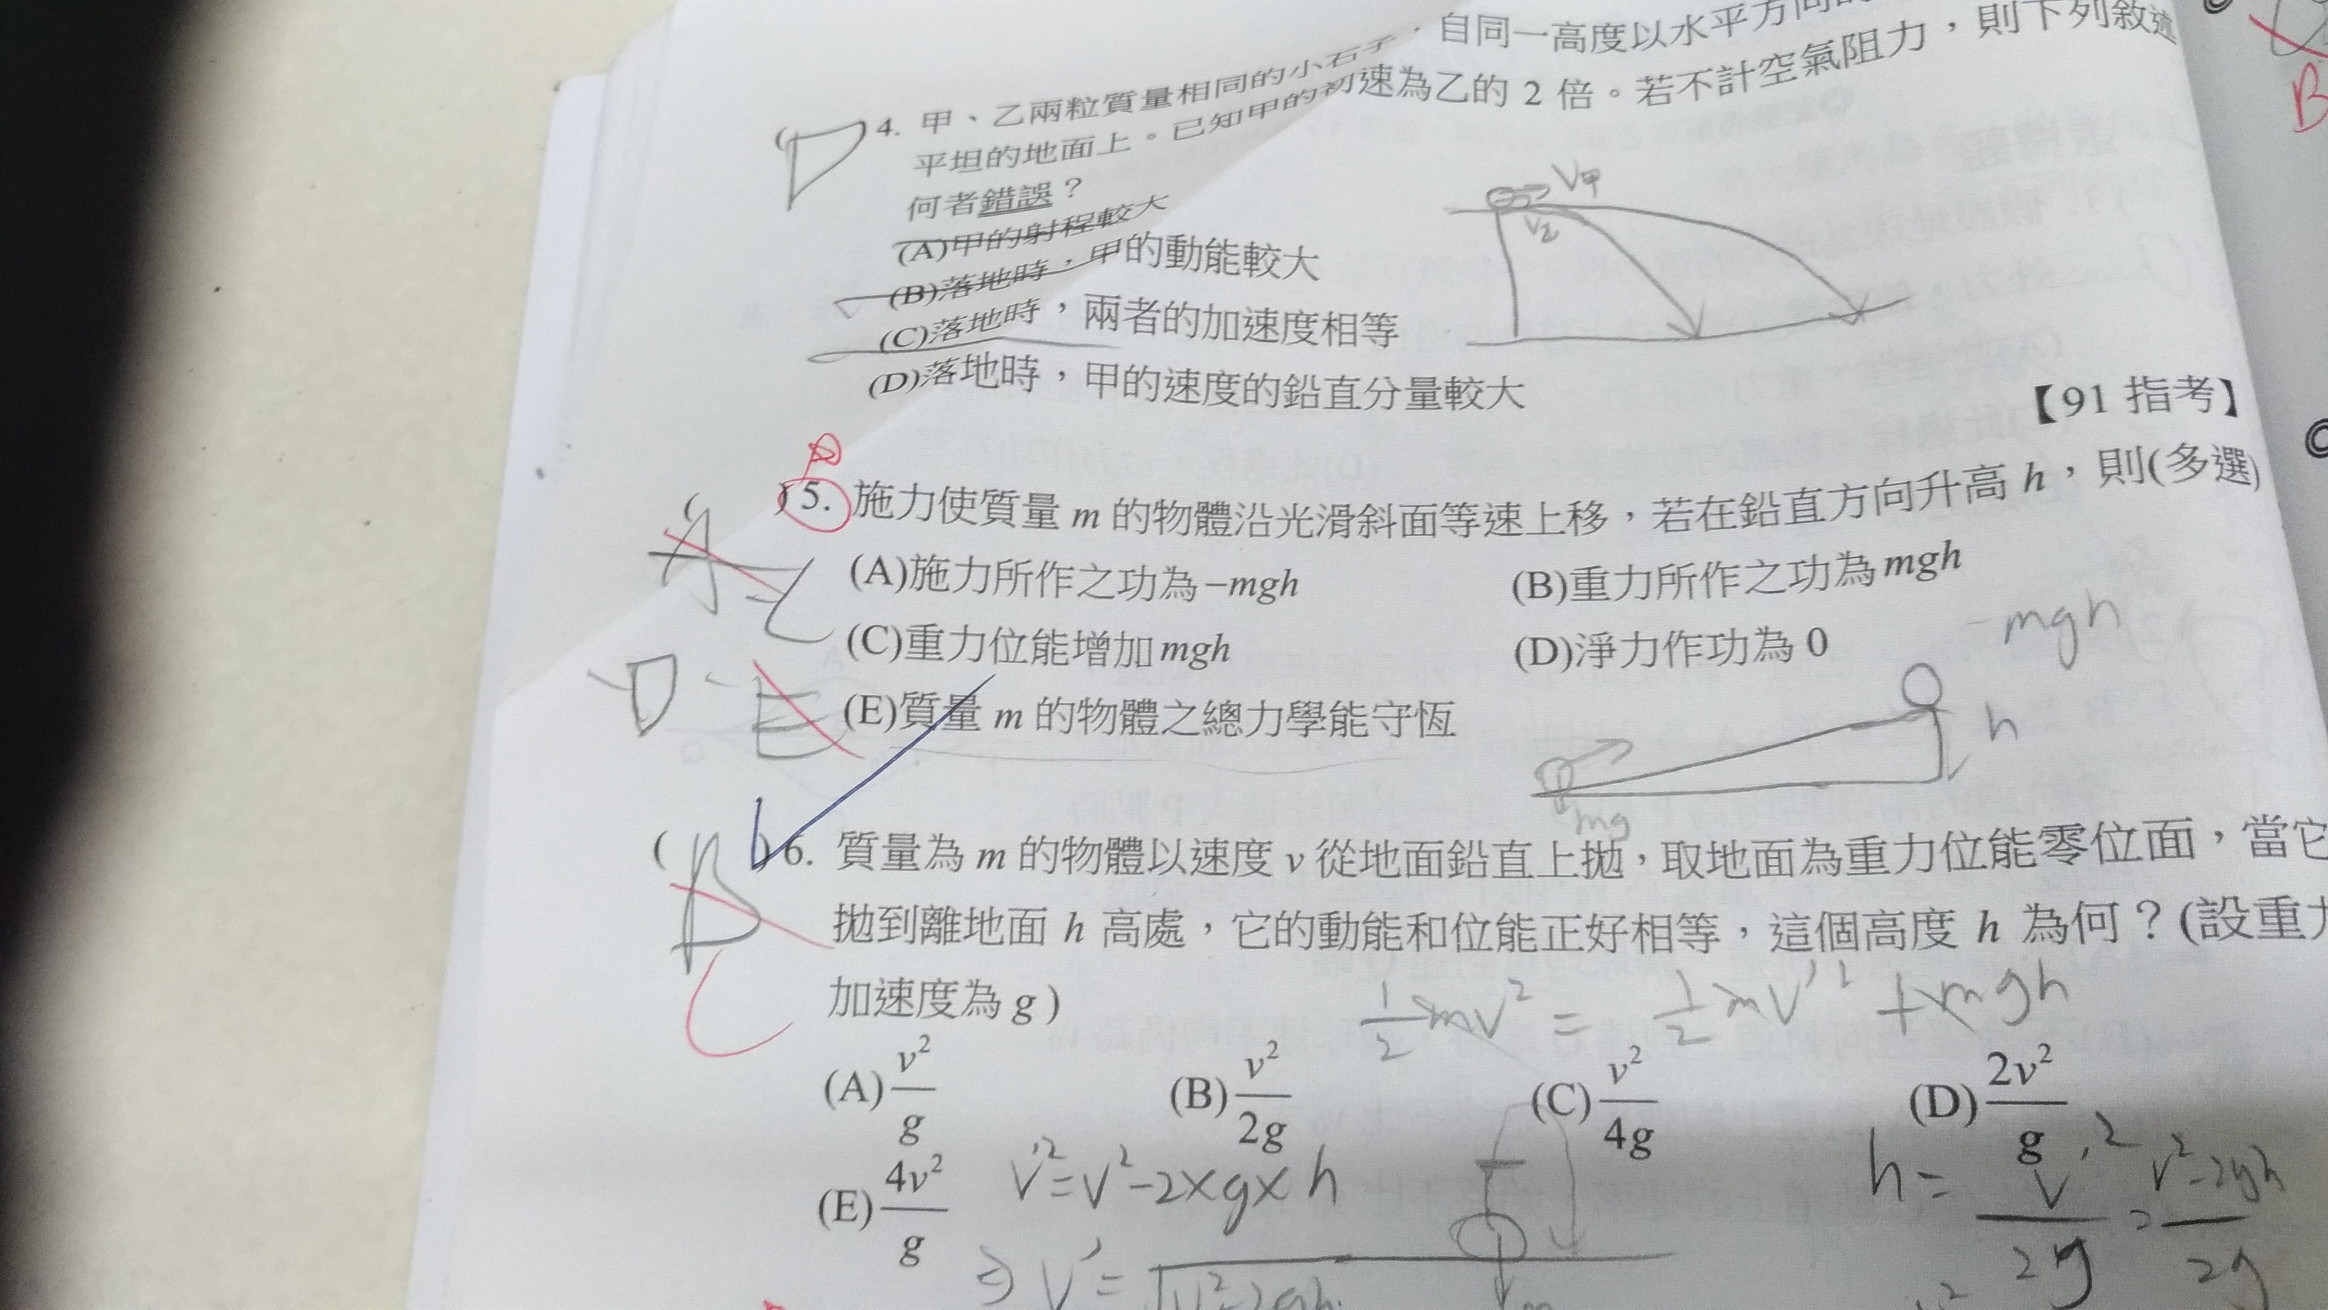 4. 甲、乙兩粒質量相同的小石子，自同一高度以水平方向
平坦的地面上。已知甲的初速為乙的 2 倍。若不計空氣阻力，則下列敘述
何者錯誤？
(A)甲的射程較大
(B)落地時，甲的動能較大
(C)落地時，兩者的加速度相等
(D)落地時，甲的速度的鉛直分量較大
V甲
V乙
D
【91 指考】
B
( )5. 施力使質量 m 的物體沿光滑斜面等速上移，若在鉛直方向升高 h，則(多選)
(A)施力所作之功為–mgh (B)重力所作之功為mgh
-mgh
(C)重力位能增加mgh (D)淨力作功為 0
(E)質量 m 的物體之總力學能守恆
A
C
D
E
h
mg
( )6. 質量為 m 的物體以速度 v 從地面鉛直上拋，取地面為重力位能零位面，當它
拋到離地面 h 高處，它的動能和位能正好相等，這個高度 h 為何？(設重力
加速度為 g )
B
C
1/2 mv² = 1/2 mv'² + mgh
(A) v²/g (B) v²/2g (C) v²/4g (D) 2v²/g
(E) 4v²/g
v'² = v² - 2×g×h
h = v'²/2g = v²-2gh/2g
⇒ v' = √v²-2gh